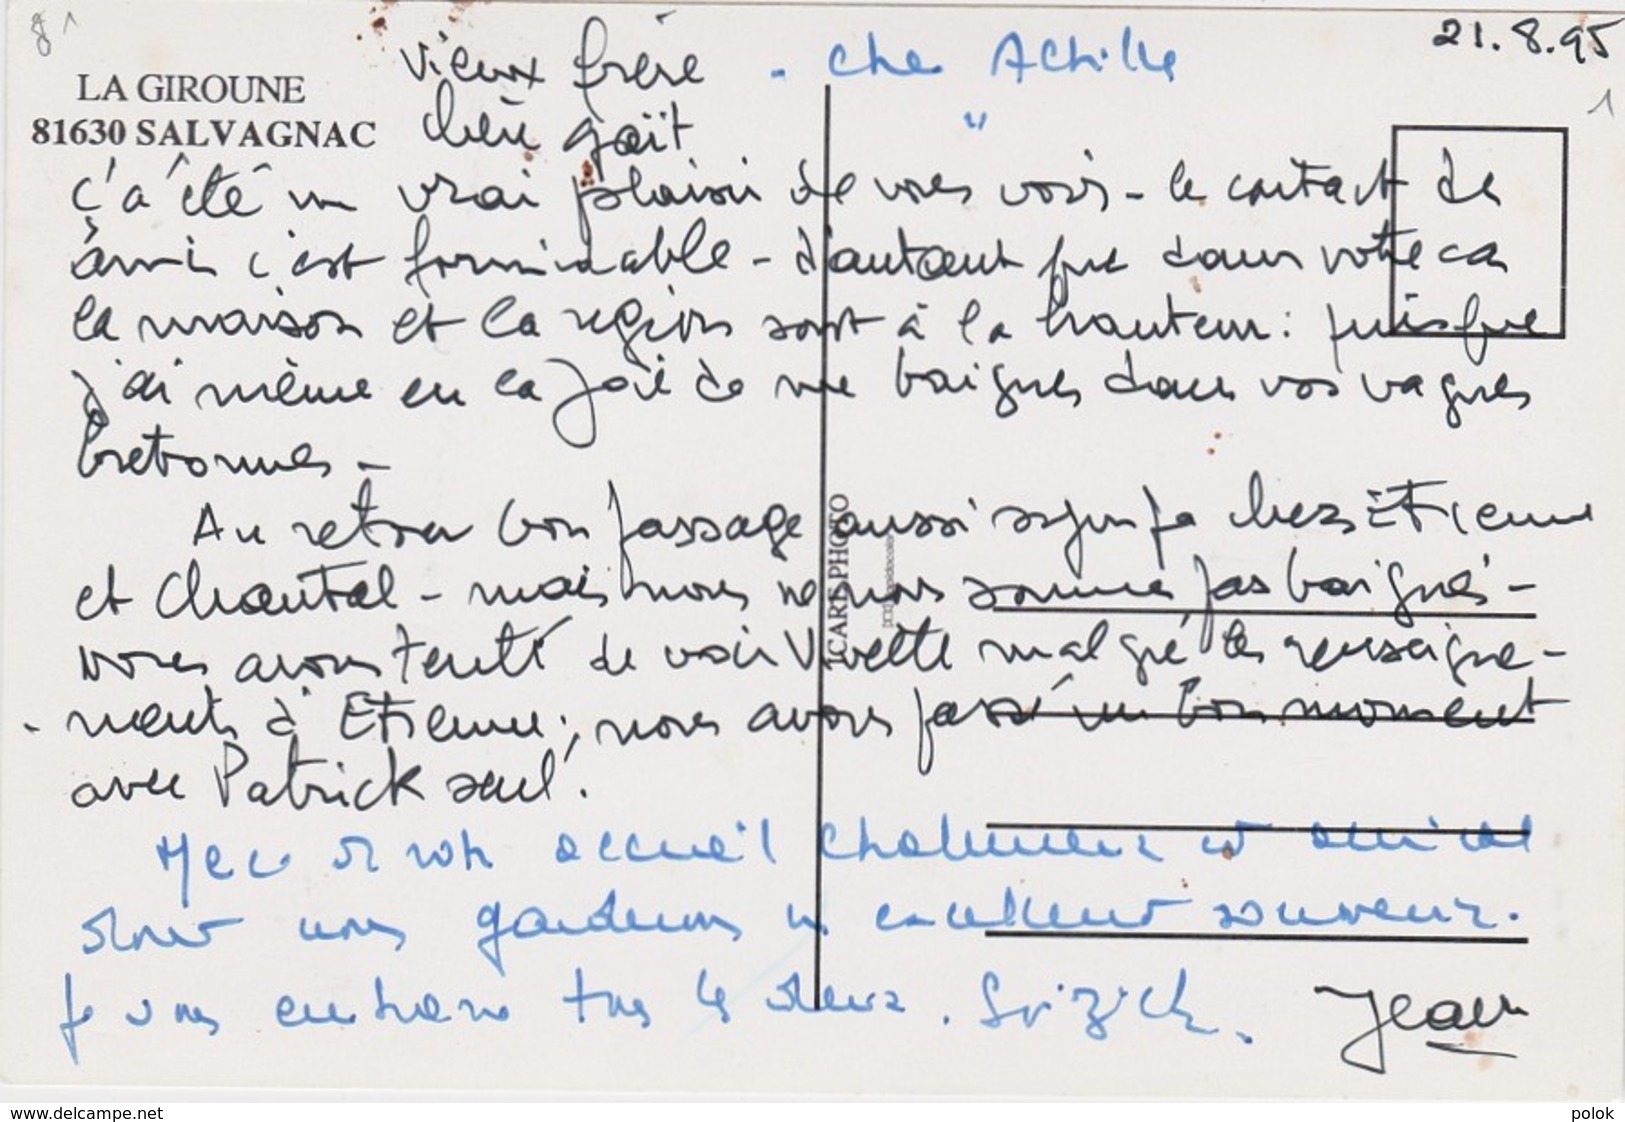 21.8.95
LA GIROUNE
81630 SALVAGNAC
vieux frère - cher Achille
chère "
ç'a été un vrai plaisir de vous voir - le contact des
amis c'est formidable - d'autant que dans votre cas
la maison et la région sont à la hauteur : puisque
j'ai même eu la joie de me baigner dans vos vagues
bretonnes -
Au retour bon passage aussi chez Etienne
et Chantal - mais nous ne nous sommes pas baignés -
nous avons tenté de voir Vivette malgré les renseigne-
- ments d'Etienne ; nous avons passé un bon moment
avec Patrick seul.
votre accueil chaleureux et amical
dont nous garderons un excellent souvenir.
Je vous embrasse tous les deux.
Jean
ICARE PHOTO
www.delcampe.net
polok